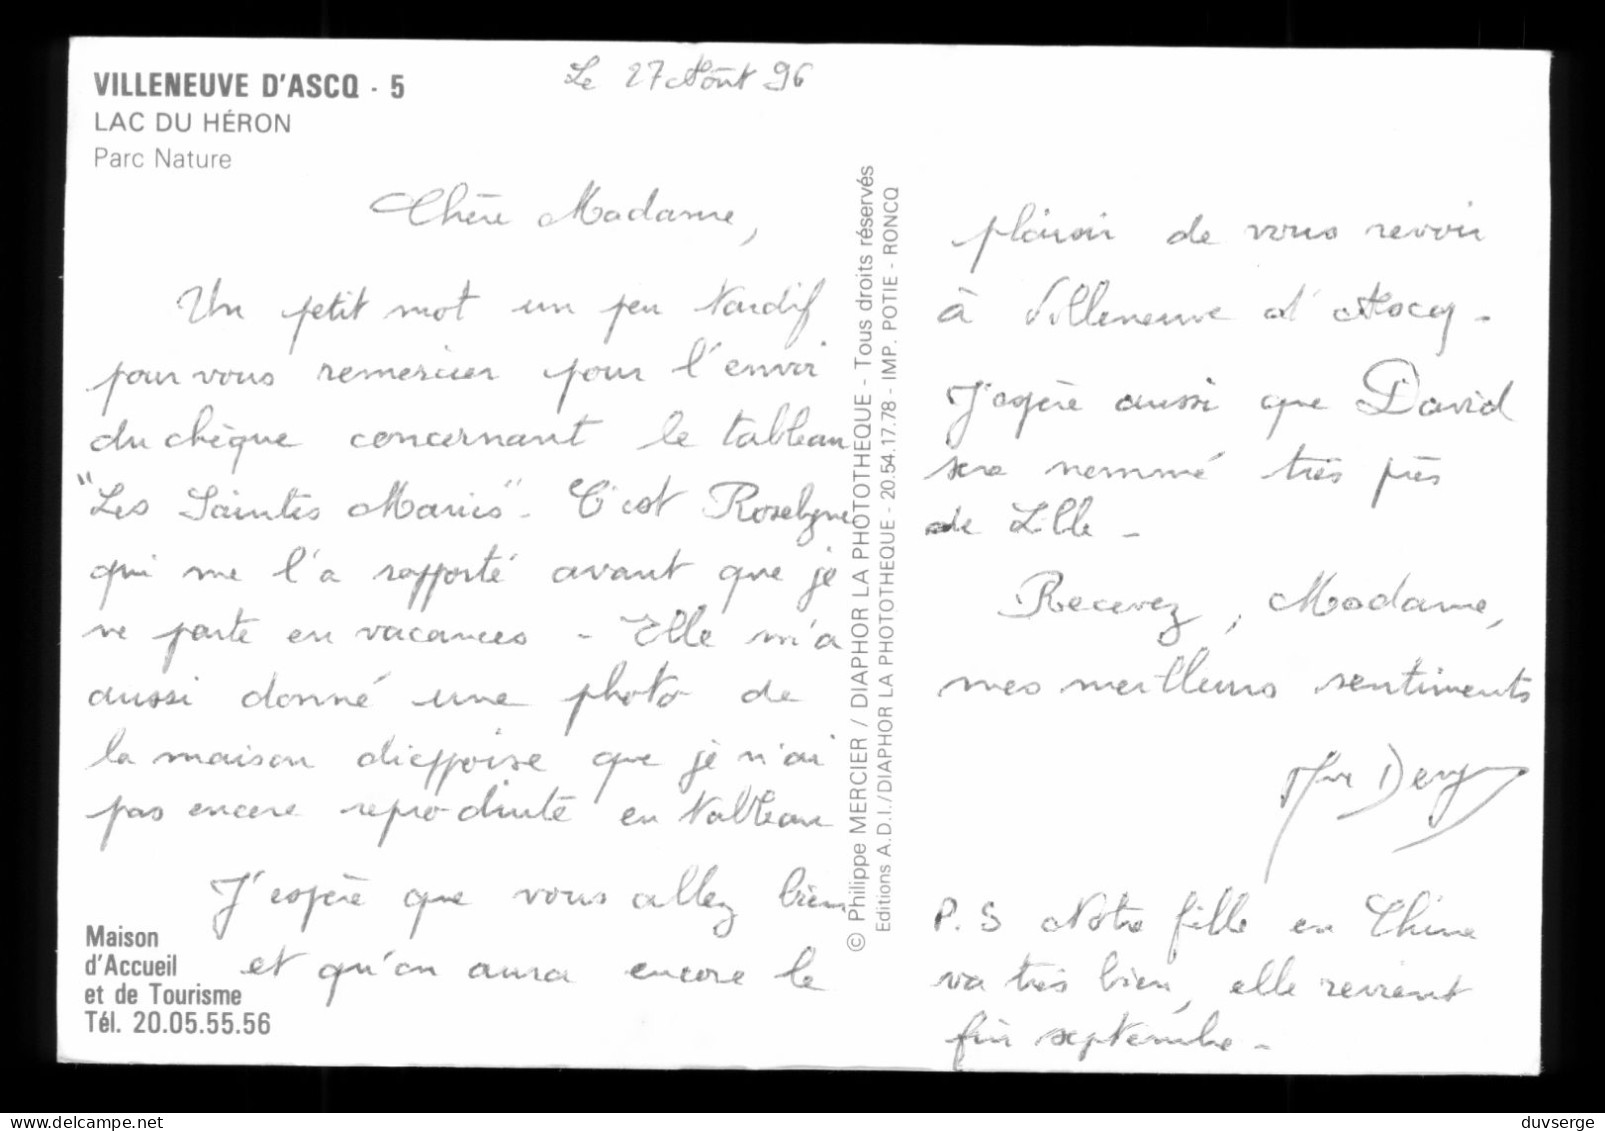 VILLENEUVE D'ASCQ · 5
LAC DU HÉRON
Parc Nature
Le 27 Août 96
Chère Madame,
Un petit mot un peu tardif
pour vous remercier pour l'envoi
du chèque concernant le tableau
"Les Saintes Maries". C'est Roselyne
qui me l'a rapporté avant que je
ne parte en vacances - Elle m'a
aussi donné une photo de
la maison dieppoise que je n'ai
pas encore reproduite en tableau
J'espère que vous allez bien
et qu'on aura encore le
Maison
d'Accueil
et de Tourisme
Tél. 20.05.55.56
© Philippe MERCIER / DIAPHOR LA PHOTOTHEQUE - Tous droits réservés
Editions A.D.I./DIAPHOR LA PHOTOTHEQUE - 20.54.17.78 - IMP. POTIE - RONCQ
plaisir de vous revoir
à Villeneuve d'Ascq -
J'espère aussi que David
sera nommé très près
de Lille -
Recevez, Madame,
mes meilleurs sentiments
P.S Notre fille en Chine
va très bien, elle revient
fin septembre -
duvserge